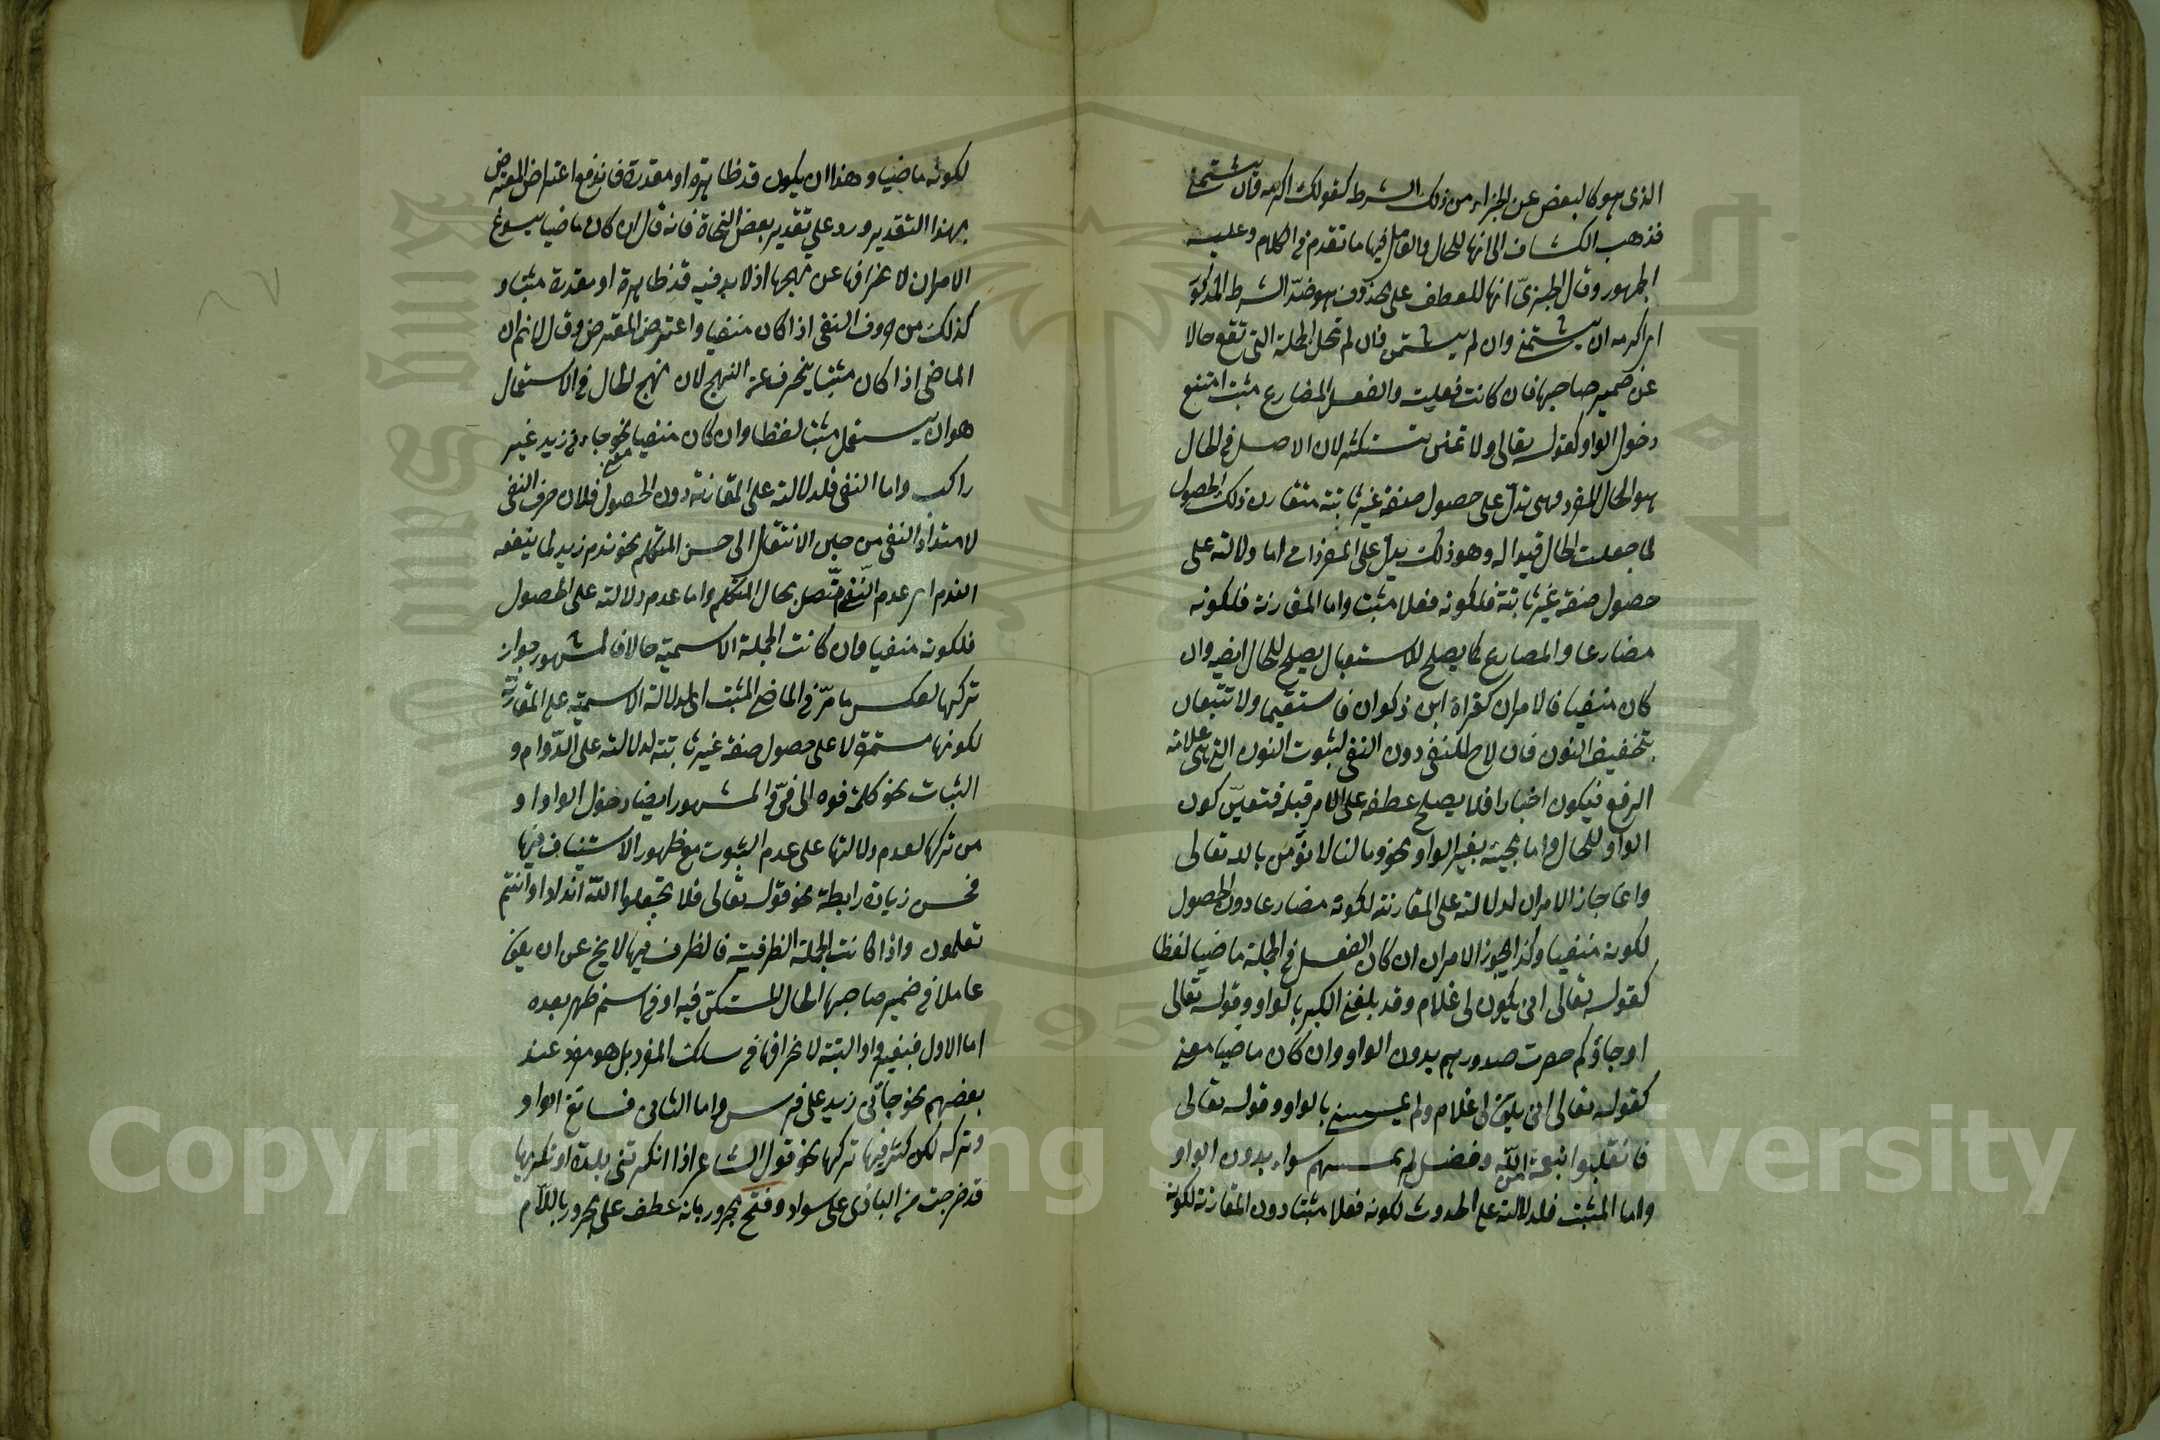 الذى هو كالبعض عن الجزاء من ذلك الشرط كقولك اكرمه وان يشتمني
فذهب الكشاف الى انها للحال والعامل فيها ما تقدم فى الكلام وعليه
الجمهور وقال الجنزى انها للعطف على محذوف هو ضد الشرط المذكور
اى اكرمه ان يشتمنى وان لم يشتمن فان لم تخل الجملة التى تقع حالا
عن ضمير صاحبها فان كانت فعلية والفعل المضارع مثبت امتنع
دخول الواو كقوله تعالى ولا تمنن تستكثر لان الاصل فى الحال
هو الحال المفرد وهى تدل على حصول صفة غير ثابتة مقارن ذلك الحصول
لما جعلت الحال قيدا له وهو ذلك يدل على المفرد اما دلالته على
حصول صفة غير ثابتة فلكونه فعلا مثبتا واما المقارنة فلكونه
مضارعا والمضارع كما يصلح للاستقبال يصلح للحال ايضا وان
كان منفيا فالامران كقراة ابن ذكوان فاستقيما ولا تتبعان
بتخفيف النون فان لا ح للنفى دون النفى لثبوت النون التى هى علامة
الرفع فيكون اخبارا فلا يصلح عطفه على الامر قبله فتعين كون
الواو للحال واما مجيئه بغير الواو نحو وما لنا لا نؤمن بالله تعالى
وانما جاز الامران لدلالته على المقارنة لكونه مضارعا دون الحصول
لكونه منفيا وكذا يجوز الامران ان كان الفعل فى الجملة ماضيا لفظا
كقوله تعالى انى يكون لى غلام وقد بلغنى الكبر بالواو وقوله تعالى
او جاؤكم حصرت صدورهم بدون الواو وان كان ماضيا معنى
كقوله تعالى انى يكون لى غلام ولم يمسسنى بالواو وقوله تعالى
فانقلبوا بنعمة من الله وفضل لم يمسسهم سواء بدون الواو
واما المثبت فلدلالته على الحدوث لكونه فعلا مثبتا دون المقارنة لكونه
لكونه ماضيا وهذا ان يكون قد ظاهرة او مقدرة فاندفع اعتراض المعترض
بهذا التقدير ورد على تقدير بعض النحاة فانه قال ان كان ماضيا يسوغ
الامران لانحرافها عن نهجها اذ لا بد فيه قد ظاهرة او مقدرة مثبتا و
كذلك من حروف النفى اذا كان منفيا واعترض المعترض وقال لا نم ان
الماضى اذا كان مثبتا ينحرف عن النهج لان نهج الحال فى الاستعمال
هو ان يستعمل مثبتا لفظا وان كان منفيا نحو جاءنى زيد غير
راكب واما النفى فلدلالته على المقارنة دون الحصول فلان حرف النفى
لامتداد النفى من حين الانتقال الى حسن المتكلم نحو ندم زيد لما ينفعه
الندم اى عدم النفع متصل بحال المتكلم واما عدم دلالته على الحصول
فلكونه منفيا وان كانت الجملة الاسمية حالا فالمشهور جواز
تركها لعكس ما مر فى الماضى المثبت اى لدلالة الاسمية على المقارنة
لكونها مستمرة لا على حصول صفة غير ثابتة لدلالته على الدوام و
الثبات نحو كلمته فوه الى فىّ والمشهور ايضا دخول الواو او
من تركها لعدم دلالتها على عدم الثبوت مع ظهور الاستيناف فيها
فحسن زيادة رابطة نحو قوله تعالى فلا تجعلوا لله اندادا وانتم
تعلمون واذا كانت الجملة الظرفية فالظرف فيها لا يخ عن ان يكون
عاملا فى ضمير صاحبها الحال المستكن فيه او فى اسم ظهر بعده
اما الاول فبغير واو البتة لانخراقها فى سلك المفرد بل هو مفرد عند
بعضهم نحو جائنى زيد على فرس واما الثانى فسائغ الواو
وتركه لكن كثر فيها تركها نحو قول الشاعر اذا انكرتنى بلدة او نكرتها
قد خرجت مع البازى على سواد وفتح مجرور بانه عطف على مجرور باللام